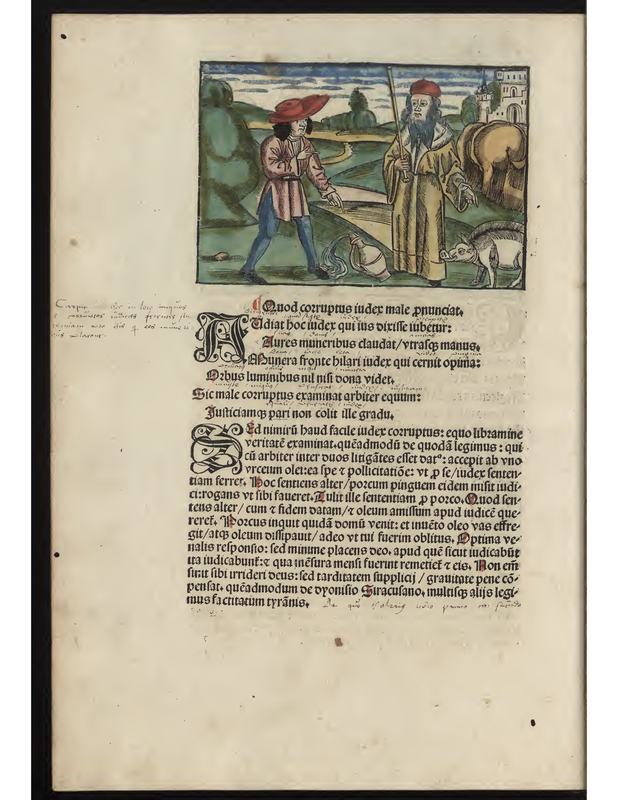 Quod corruptus iudex male ꝓnunciat.
Audiat hoc iudex qui ius dixisse iubetur:
Aures muneribus claudat/vtrasqꝫ manus.
Munera fronte hilari iudex qui cernit opima:
Orbus luminibus nil nisi dona videt.
Sic male corruptus examinat arbiter equum:
Justiciamqꝫ pari non colit ille gradu.
Sed nimirū haud facile iudex corruptus: equo libramine
veritatē examinat. quēadmodū de quodā legimus: qui
cū arbiter inter duos litigātes esset datꝰ: accepit ab vno
vrceum olei: ea spe ⁊ pollicitatiōe: vt ꝓ se/iudex senten-
tiam ferret. Hoc sentiens alter/porcum pinguem eidem misit iudi-
ci: rogans vt sibi faueret. Tulit ille sententiam ꝓ porco. Quod sen-
tens alter/cum ⁊ fidem datam/⁊ oleum amissum apud iudicē que-
reret̄. Porcus inquit quidā domū venit: et inuēto oleo vas effre-
git/atqꝫ oleum dissipauit/adeo vt tui fuerim oblitus. Optima ve-
nalis responsio: sed minime placens deo. apud quē sicut iudicabūt
ita iudicabunt̄: ⁊ qua mēsura mensi fuerint remetiet̄ ⁊ eis. Non em̄
sinit sibi irrideri deus: sed tarditatem supplicij/grauitate pene cō-
pensat. quēadmodum de dyonisio Siracusano. multisqꝫ alijs legi-
mus factitatum tyrānis.